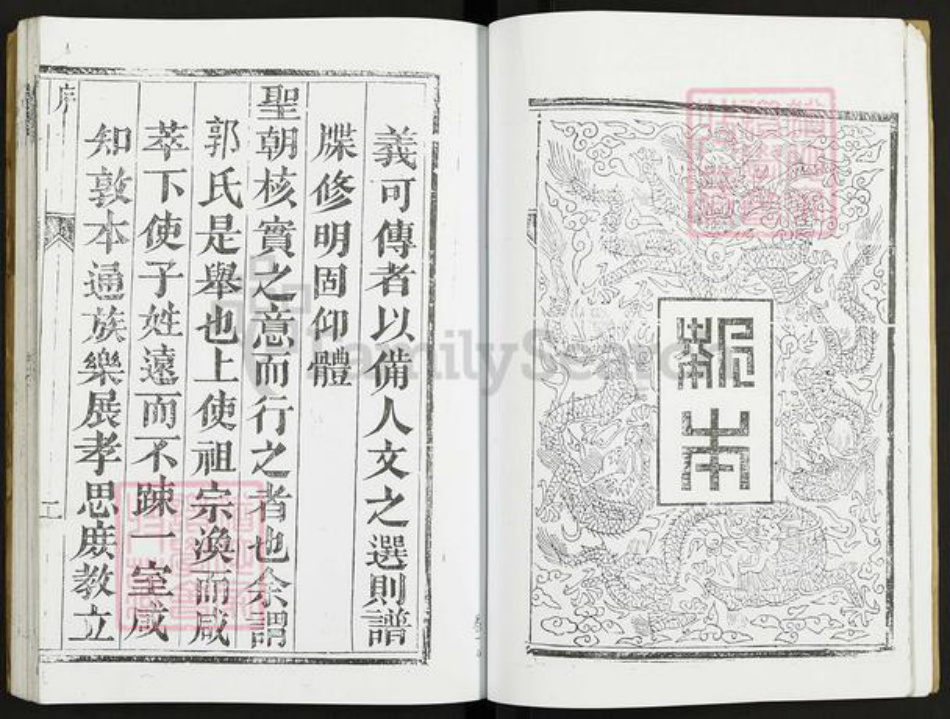 報本
義可傳者以備人文之選則譜
牒修明固仰體
聖朝核實之意而行之者也余謂
郭氏是舉也上使祖宗渙而咸
萃下使子姓遠而不踈一室咸
知敦本通族樂展孝思庻教立
序
FamilySearch